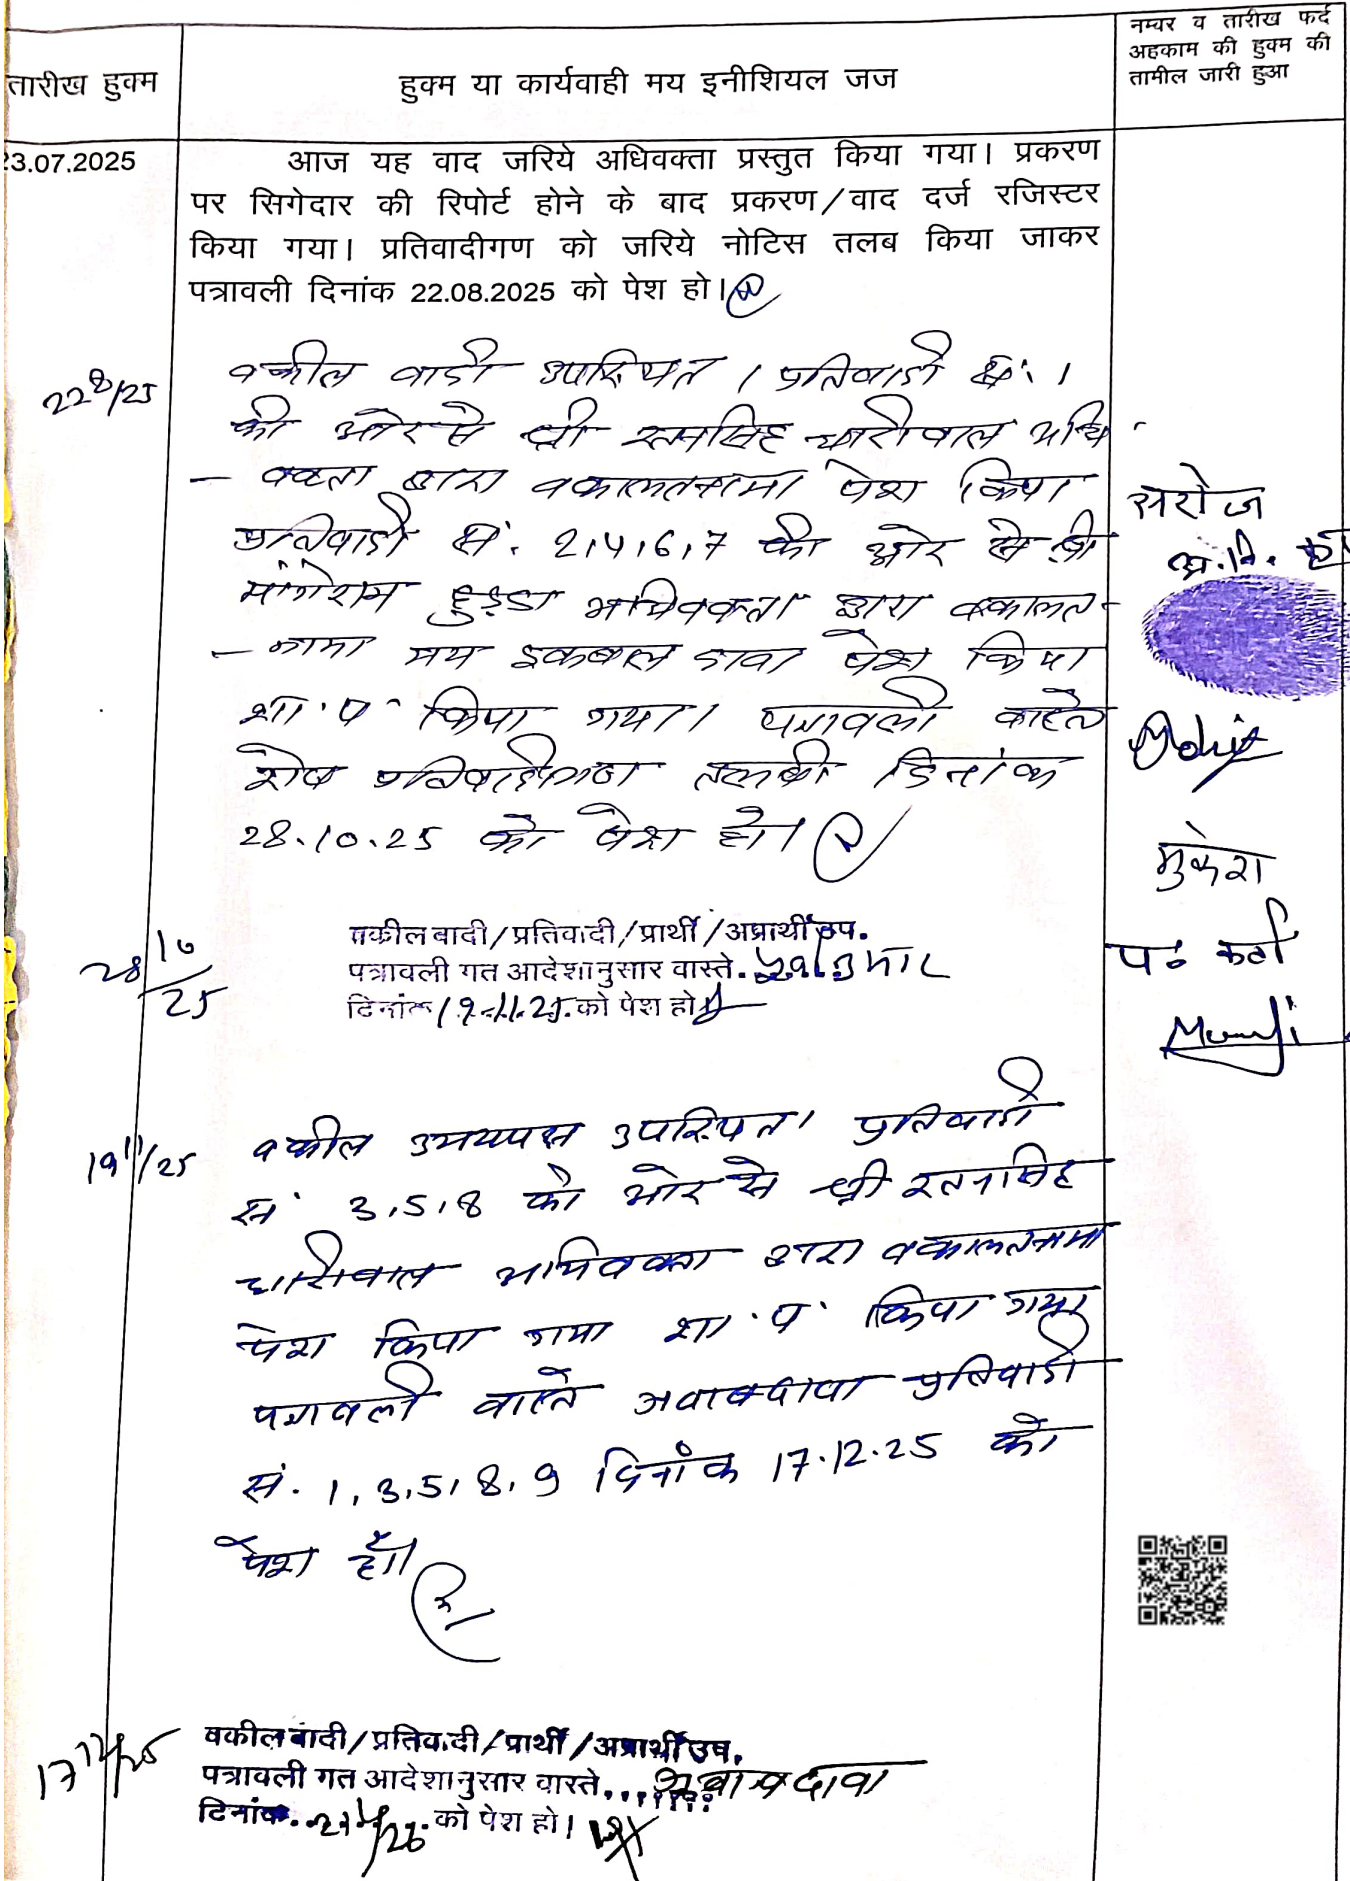 तारीख हुक्म
हुक्म या कार्यवाही मय इनीशियल जज
नम्वर व तारीख फर्द
अहकाम की हुक्म की
तामील जारी हुआ
23.07.2025
आज यह वाद जरिये अधिवक्ता प्रस्तुत किया गया। प्रकरण
पर सिगेदार की रिपोर्ट होने के बाद प्रकरण/वाद दर्ज रजिस्टर
किया गया। प्रतिवादीगण को जरिये नोटिस तलब किया जाकर
पत्रावली दिनांक 22.08.2025 को पेश हो।
22 8/25
वकील वादी उपस्थित । प्रतिवादी सं. 1
की ओर से श्री रतनसिंह अधि
- वक्ता द्वारा वकालतनामा पेश किया
प्रतिवादी सं. 2,4,6,7 की ओर से श्री
मांगेराम हुड्डा अधिवक्ता द्वारा वकालत-
- नामा मय इकबाल दावा पेश किया
शा.प. किया गया। पत्रावली वास्ते
शेष प्रतिवादीगण तलबी दिनांक
28.10.25 को पेश हो।
सरोज
मुकेश
28 10/25
वकील वादी/प्रतिवादी/प्रार्थी/अप्रार्थी उप.
पत्रावली गत आदेशानुसार वास्ते.
दिनांक 19.11.25. को पेश हो
19 11/25
वकील उभयपक्ष उपस्थित। प्रतिवादी
सं 3,5,8 की ओर से श्री रतनसिंह
अधिवक्ता द्वारा वकालतनामा
पेश किया गया शा.प. किया गया
पत्रावली वास्ते जवाबदावा प्रतिवादी
सं. 1,3,5,8,9 दिनांक 17.12.25 को
पेश हो।
17 12/25
वकील वादी/प्रतिवादी/प्रार्थी/अप्रार्थी उप.
पत्रावली गत आदेशानुसार वास्ते....... जवाबदावा
दिनांक.. को पेश हो।